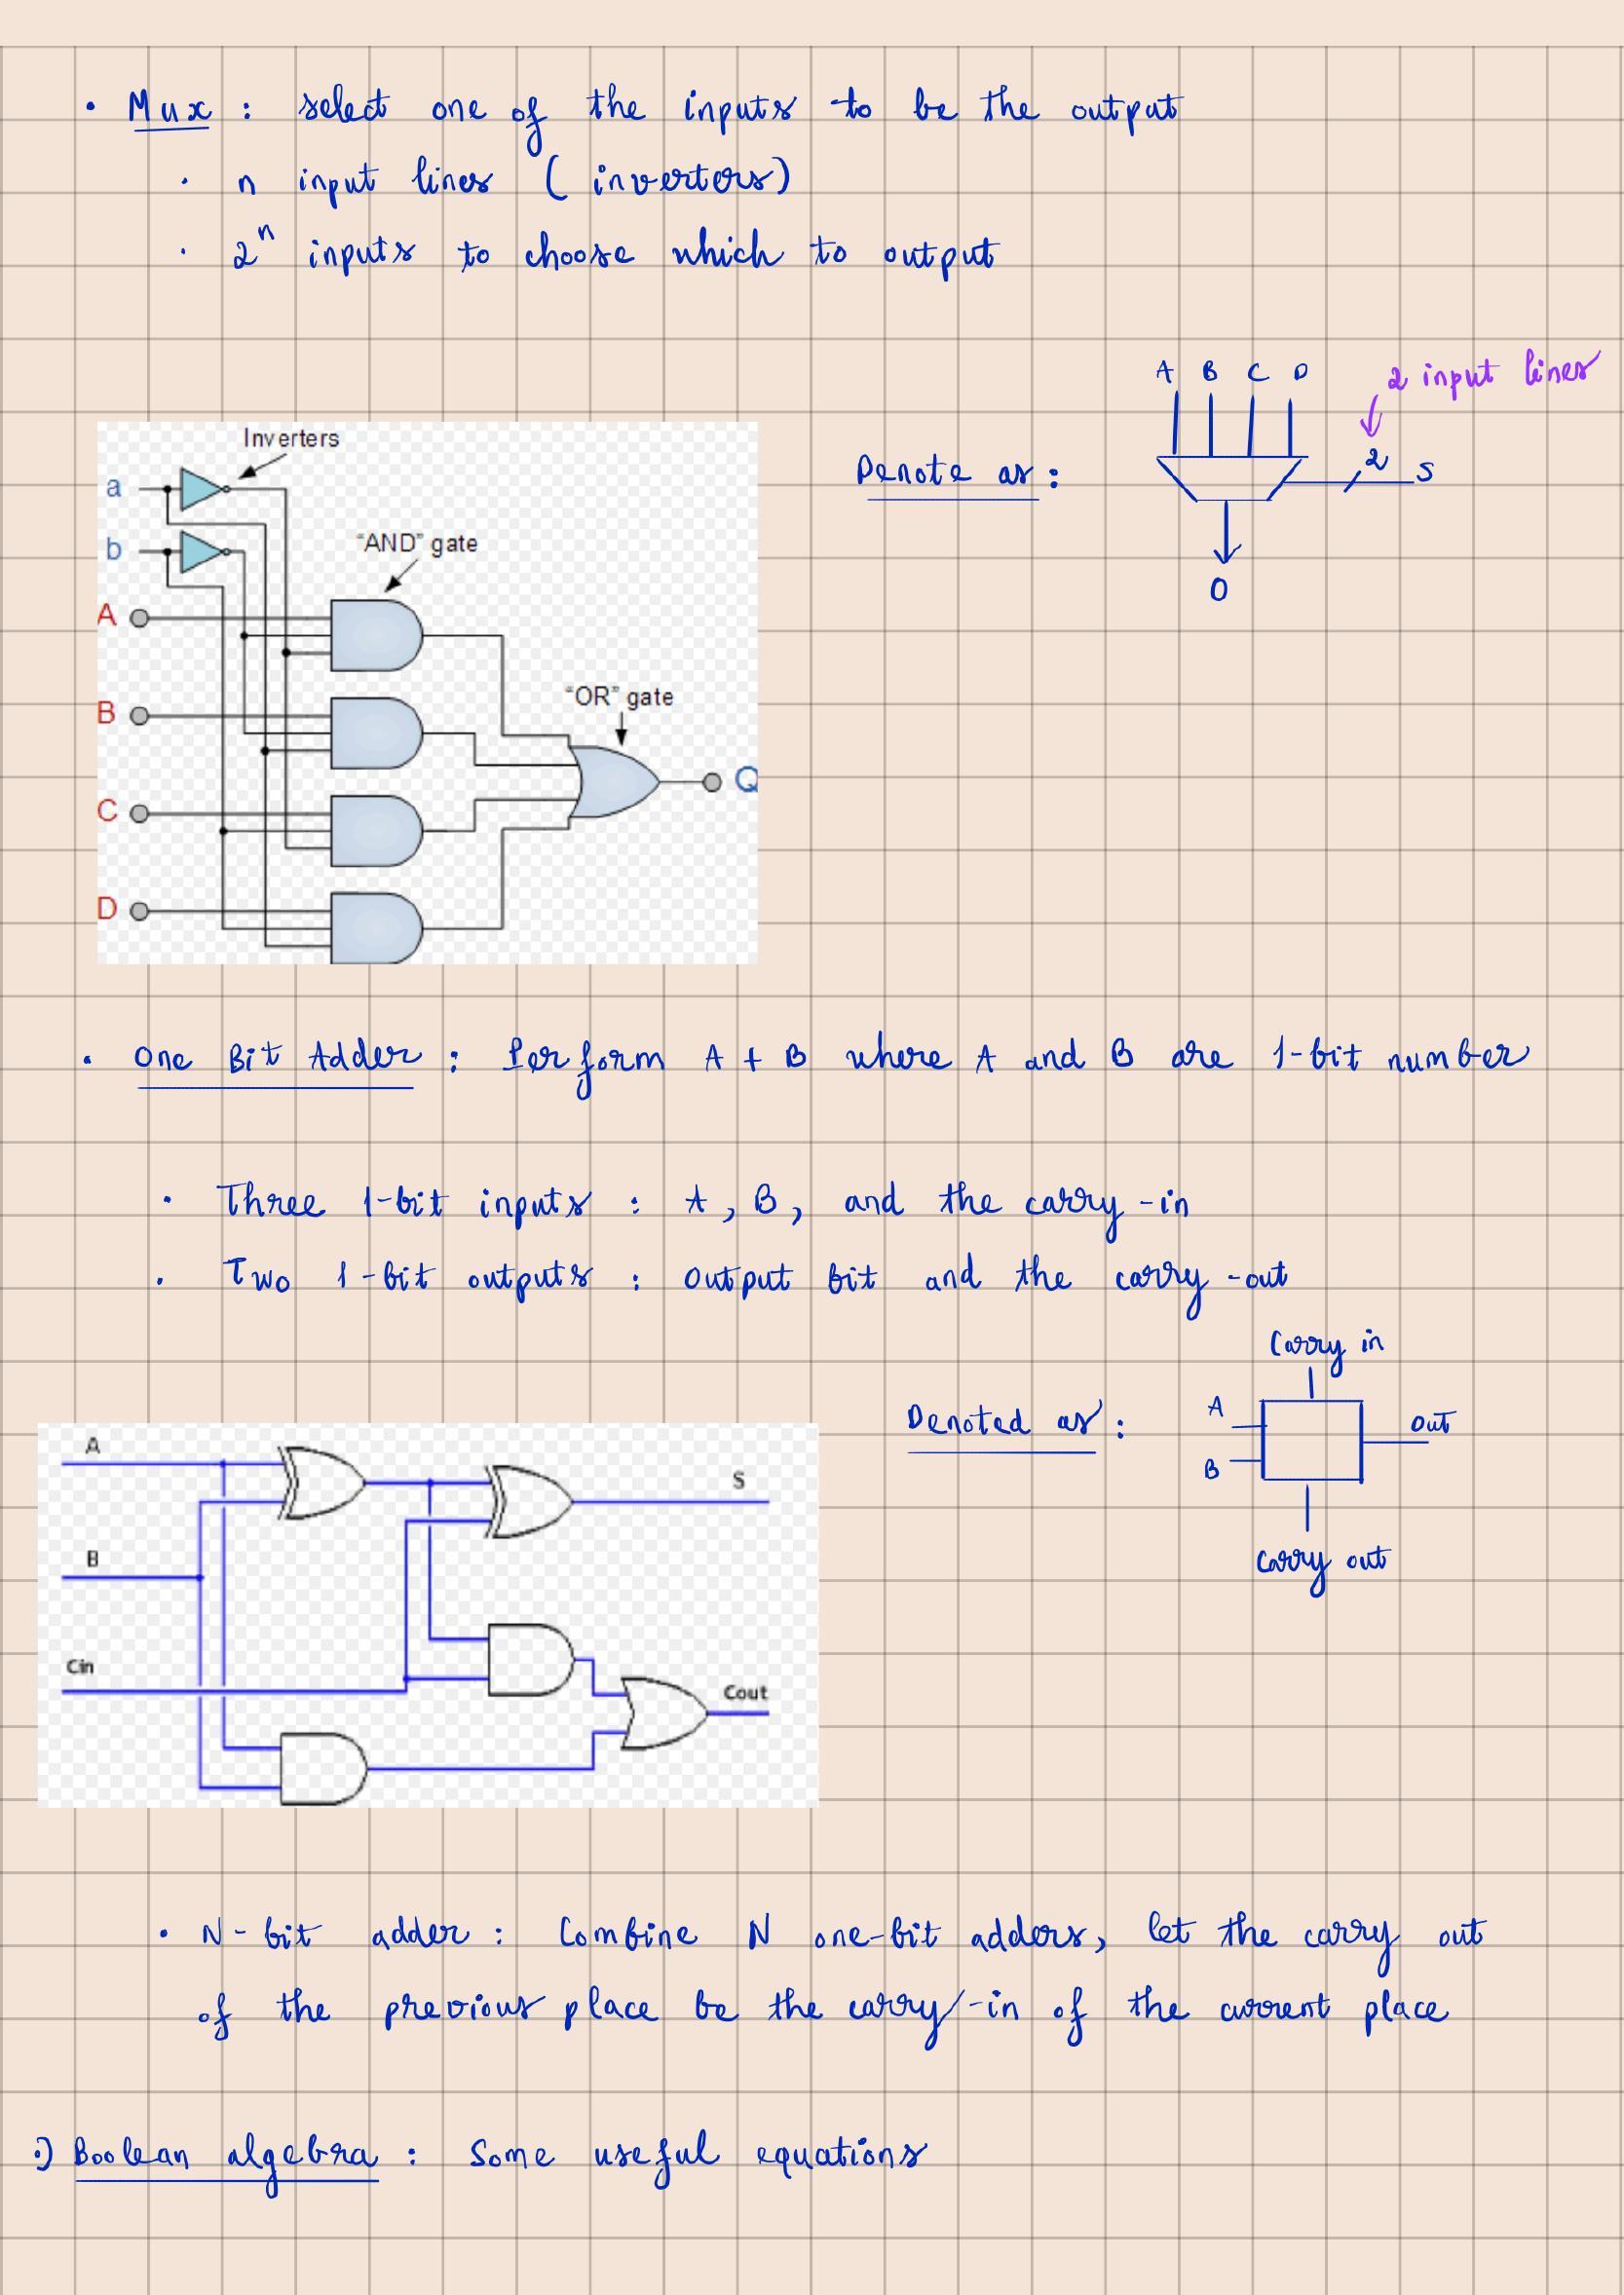 • Mux : select one of the inputs to be the output
• n input lines ( inverters)
• 2ⁿ inputs to choose which to output
A B C D
2 input lines
Denote as :
2 S
O
Inverters
a
b
"AND" gate
A
B
"OR" gate
Q
C
D
• One Bit Adder : Perform A + B where A and B are 1-bit number
• Three 1-bit inputs : A, B, and the carry-in
• Two 1-bit outputs : output bit and the carry-out
Carry in
Denoted as :
A
B
out
Carry out
A
S
B
Cin
Cout
• N-bit adder : Combine N one-bit adders, let the carry out
of the previous place be the carry-in of the current place
•) Boolean algebra : Some useful equations